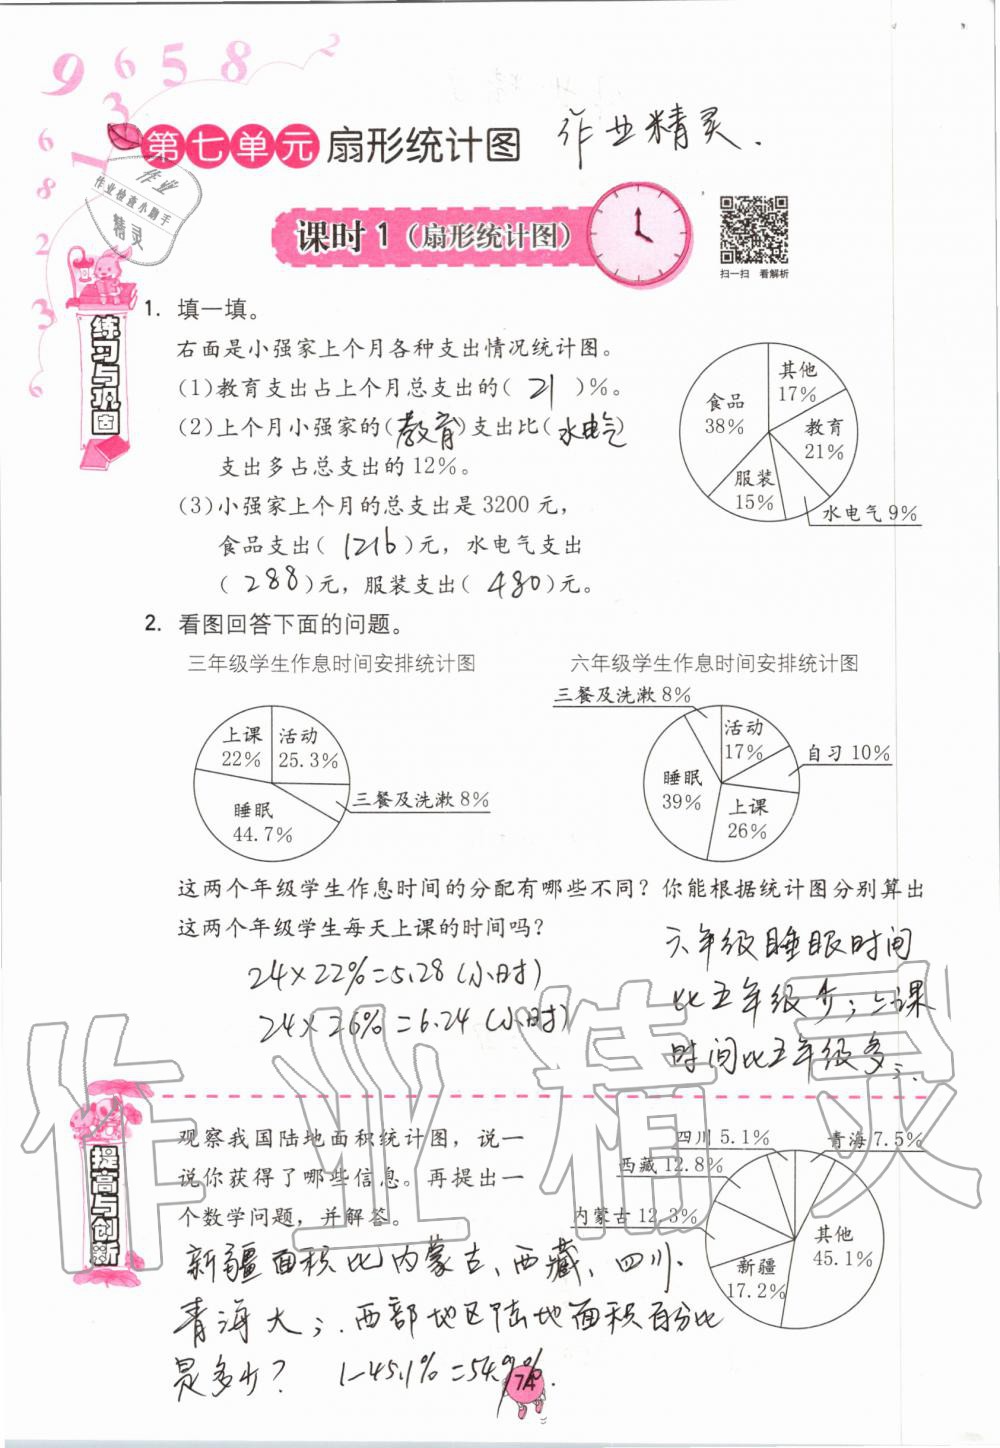 9 6 5 8 2
第七单元 扇形统计图 作业精灵.
作业
作业检查小助手
精灵
课时1（扇形统计图）
扫一扫 看解析
练习与巩固
1. 填一填。
右面是小强家上个月各种支出情况统计图。
(1)教育支出占上个月总支出的( 21 )%。
(2)上个月小强家的(教育)支出比(水电气)
支出多占总支出的12%。
(3)小强家上个月的总支出是3200元，
食品支出( 1216 )元，水电气支出
( 288 )元，服装支出( 480 )元。
其他
17%
食品
38%
教育
21%
服装
15%
水电气9%
2. 看图回答下面的问题。
三年级学生作息时间安排统计图
六年级学生作息时间安排统计图
上课
22%
活动
25.3%
三餐及洗漱8%
睡眠
44.7%
三餐及洗漱8%
活动
17%
自习10%
睡眠
39%
上课
26%
这两个年级学生作息时间的分配有哪些不同？你能根据统计图分别算出
这两个年级学生每天上课的时间吗？
24×22%=5.28(小时)
24×26%=6.24(小时)
六年级睡眠时间
比五年级少；上课
时间比五年级多；.
作业精灵
提高与创新
观察我国陆地面积统计图，说一
说你获得了哪些信息。再提出一
个数学问题，并解答。
四川5.1%
青海7.5%
西藏12.8%
内蒙古12.3%
其他
45.1%
新疆
17.2%
新疆面积比内蒙古、西藏、四川、
青海大；.西部地区陆地面积百分比
是多少？ 1-45.1%=54.9%.
74